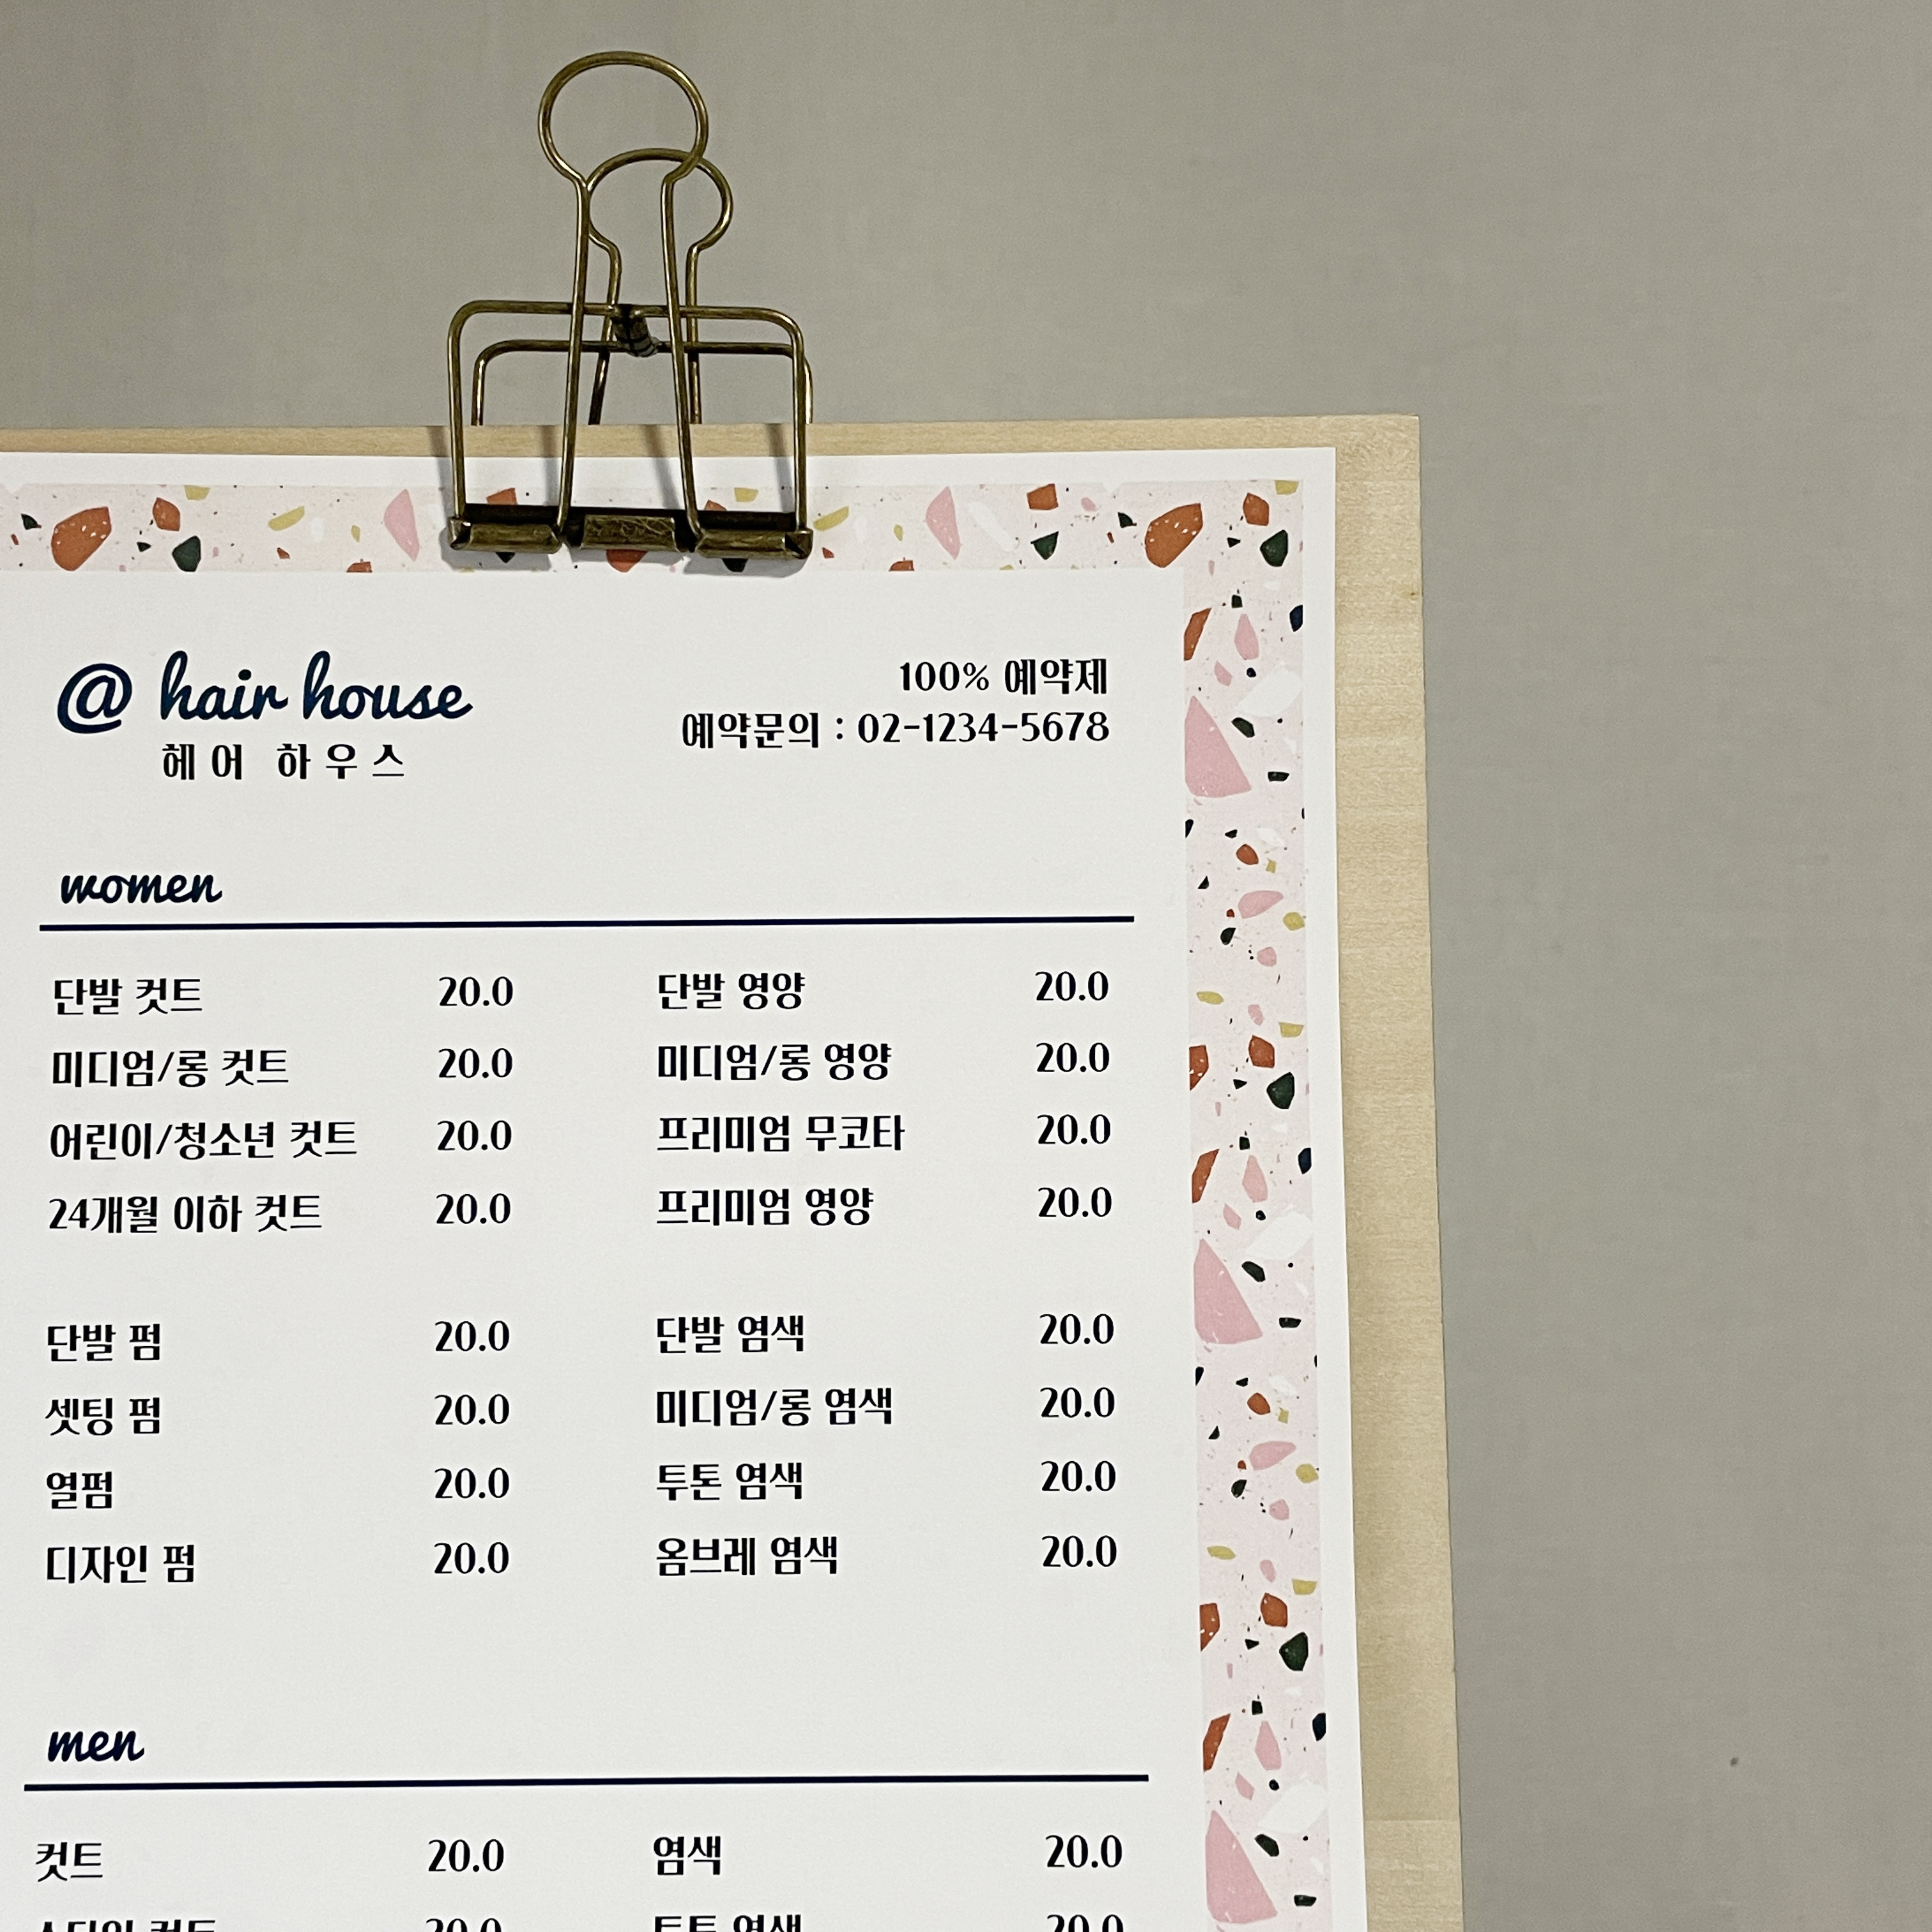 @ hair house
헤어 하우스
100% 예약제
예약문의 : 02-1234-5678
women
단발 컷트 20.0 단발 영양 20.0
미디엄/롱 컷트 20.0 미디엄/롱 영양 20.0
어린이/청소년 컷트 20.0 프리미엄 무코타 20.0
24개월 이하 컷트 20.0 프리미엄 영양 20.0
단발 펌 20.0 단발 염색 20.0
셋팅 펌 20.0 미디엄/롱 염색 20.0
열펌 20.0 투톤 염색 20.0
디자인 펌 20.0 옴브레 염색 20.0
men
컷트 20.0 염색 20.0
20.0 염색 20.0